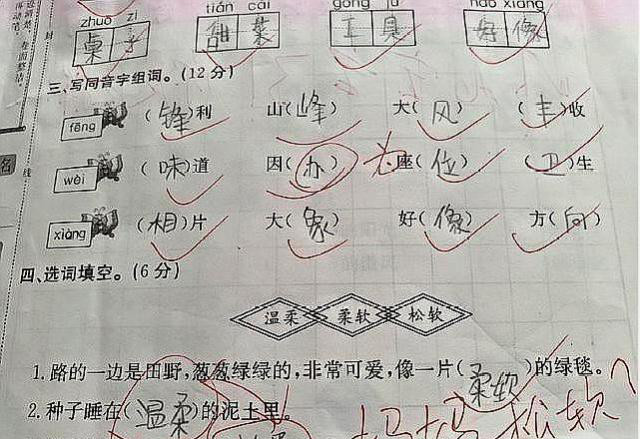 zhuō zi tián cài gōng jù hǎo xiàng
桌子 甜菜 工具 好像
三、写同音字组词。(12分)
fēng (锋)利 山(峰) 大(风) (丰)收
wèi (味)道 因(办) 为 座(位) (卫)生
xiàng (相)片 大(象) 好(像) 方(向)
四、选词填空。(6分)
温柔 柔软 松软
1.路的一边是田野,葱葱绿绿的,非常可爱,像一片(柔软)的绿毯。
2.种子睡在(温柔)的泥土里。 松软